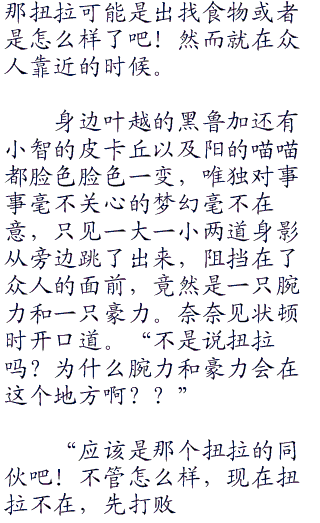 那扭拉可能是出找食物或者
是怎么样了吧！然而就在众
人靠近的时候。
身边叶越的黑鲁加还有
小智的皮卡丘以及阳的喵喵
都脸色脸色一变，唯独对事
事毫不关心的梦幻毫不在
意，只见一大一小两道身影
从旁边跳了出来，阻挡在了
众人的面前，竟然是一只腕
力和一只豪力。奈奈见状顿
时开口道。“不是说扭拉
吗？为什么腕力和豪力会在
这个地方啊？？”
“应该是那个扭拉的同
伙吧！不管怎么样，现在扭
拉不在，先打败